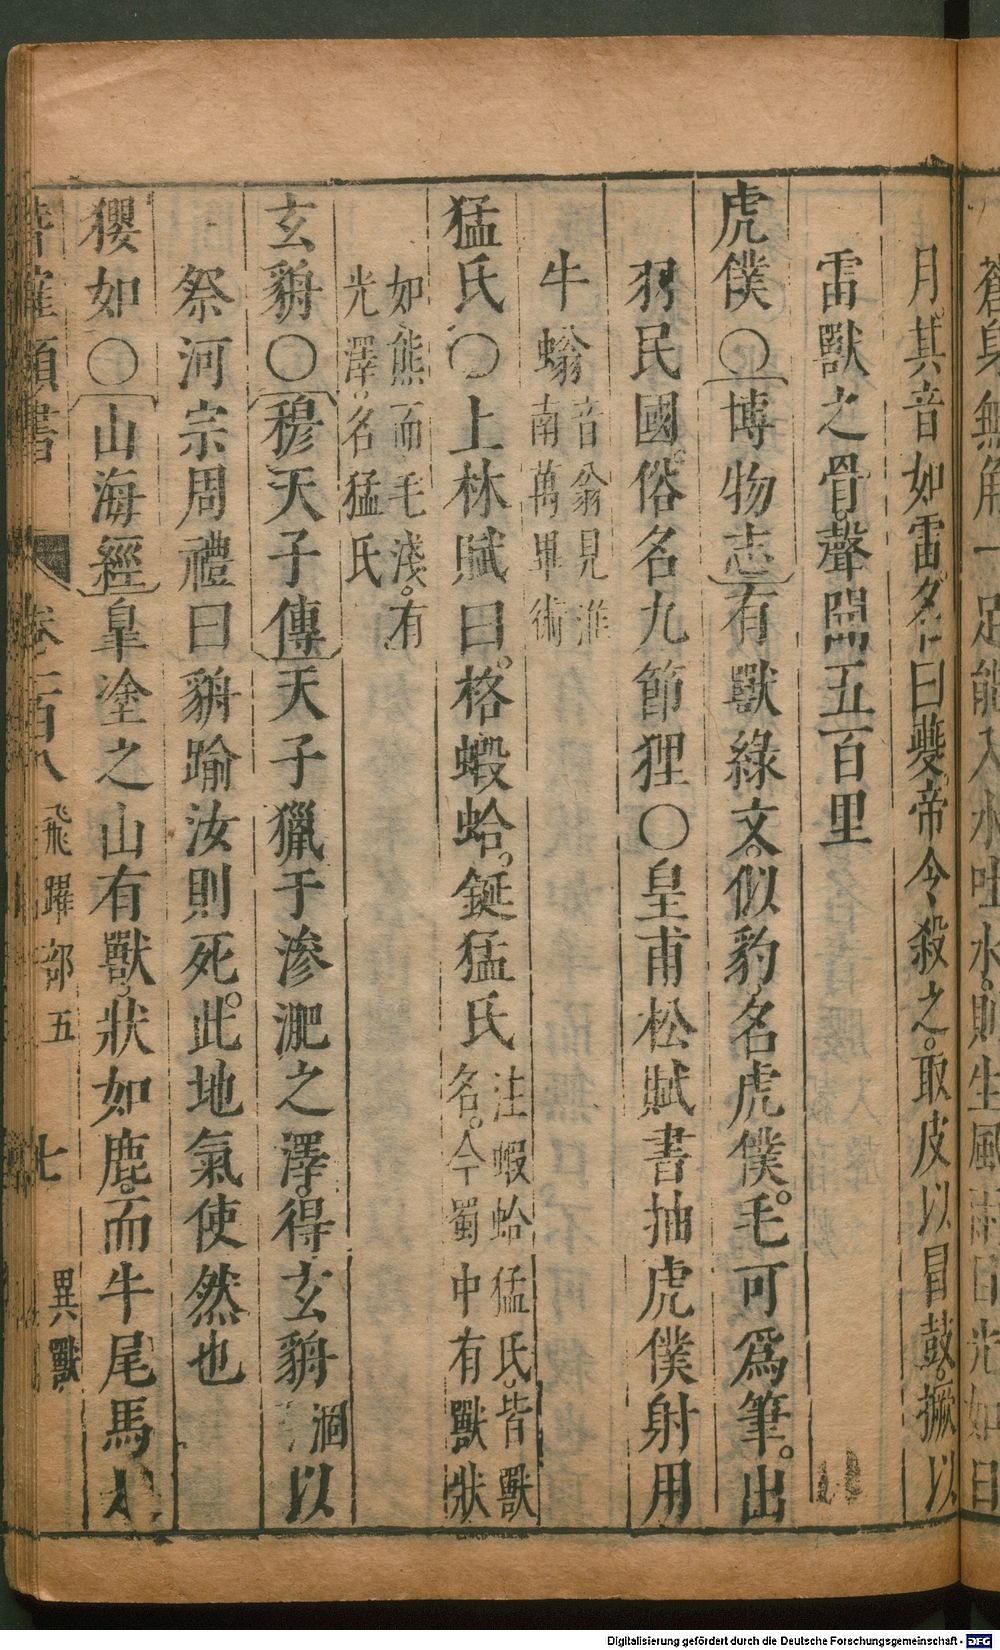 蒼身無角一足能入水吐水則生風雨目光如日
月其音如雷名曰夔帝令殺之取皮以冒鼓撅以
雷獸之骨聲聞五百里
虎僕〇博物志有獸綠文似豹名虎僕毛可爲筆出
羽民國俗名九節狸〇皇甫松賦書抽虎僕射用
牛蝓
音翁見淮
南萬畢術
猛氏〇上林賦曰格蝦蛤鋋猛氏
注蝦蛤猛氏皆獸
名今蜀中有獸狀
如熊而毛淺有
光澤名猛氏
玄貈〇穆天子傳天子獵于滲澤之澤得玄貈
涸
以
祭河宗周禮曰貈踰汶則死此地氣使然也
玃如〇山海經皐塗之山有獸狀如鹿而牛尾馬人
類書 卷 百八 飛躍部五 七 異獸
Digitalisierung gefördert durch die Deutsche Forschungsgemeinschaft - DFG